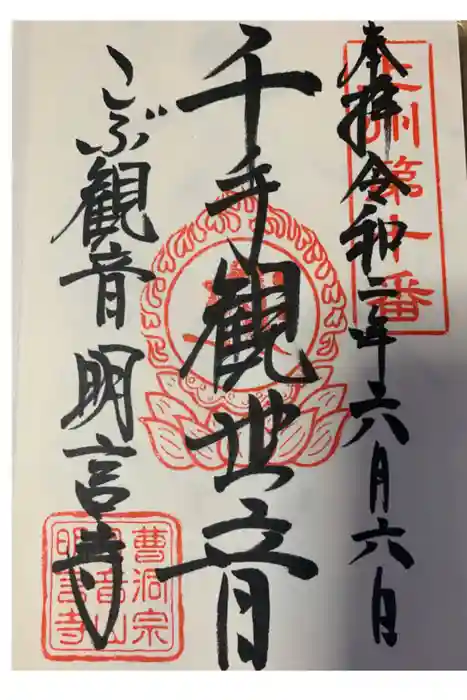 奉拝 令和二年六月六日
千手観世音
こぶ観音 明言寺
第十番
曹洞宗
音山
明言寺